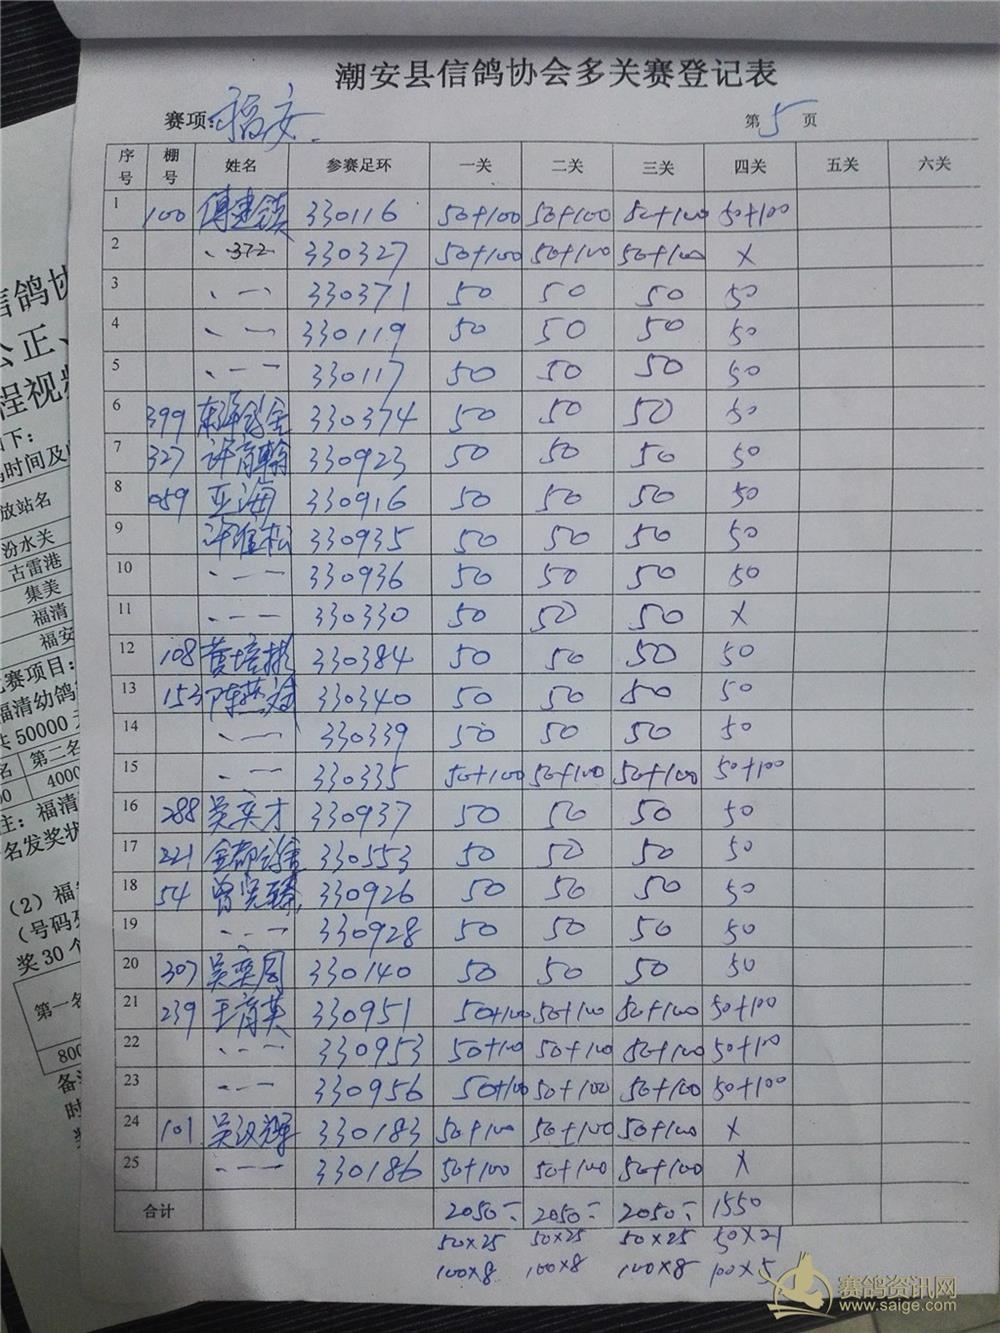 潮安县信鸽协会多关赛登记表
赛项: 福安. 第 5 页
序号 棚号 姓名 参赛足环 一关 二关 三关 四关 五关 六关
1 100 傅建镇 330116 50+100 50+100 50+100 50+100
2 372 330327 50+100 50+100 50+100 ×
3 330371 50 50 50 50
4 330119 50 50 50 50
5 330117 50 50 50 50
6 399 330374 50 50 50 50
7 327 许育翰 330923 50 50 50 50
8 059 亚海 330916 50 50 50 50
9 许维松 330935 50 50 50 50
10 330936 50 50 50 50
11 330330 50 50 50 ×
12 108 黄培彬 330384 50 50 50 50
13 153 陈燕斌 330340 50 50 50 50
14 330339 50 50 50 50
15 330335 50+100 50+100 50+100 50+100
16 288 吴奕才 330937 50 50 50 50
17 221 金都鸽舍 330553 50 50 50 50
18 54 330926 50 50 50 50
19 330928 50 50 50 50
20 307 吴奕周 330140 50 50 50 50
21 239 王育英 330951 50+100 50+100 50+100 50+100
22 330953 50+100 50+100 50+100 50+100
23 330956 50+100 50+100 50+100 50+100
24 101 吴汉辉 330183 50+100 50+100 50+100 ×
25 330186 50+100 50+100 50+100 ×
合计 2050 2050 2050 1550
50×25 50×25 50×25 50×21
100×8 100×8 100×8 100×5
信鸽协
公正、
程视频
如下:
放站名
汾水关
古雷港
集美
福清
福安
比赛项目:
福清幼鸽
共 50000
名 第二名
00 4000
注: 福清
名发奖状
(2) 福
(号码
奖30个
第一名
800
备注
时
赛鸽资讯网
www.saige.com